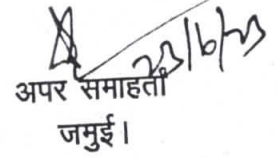 23/6/23
अपर समाहर्ता
जमुई।